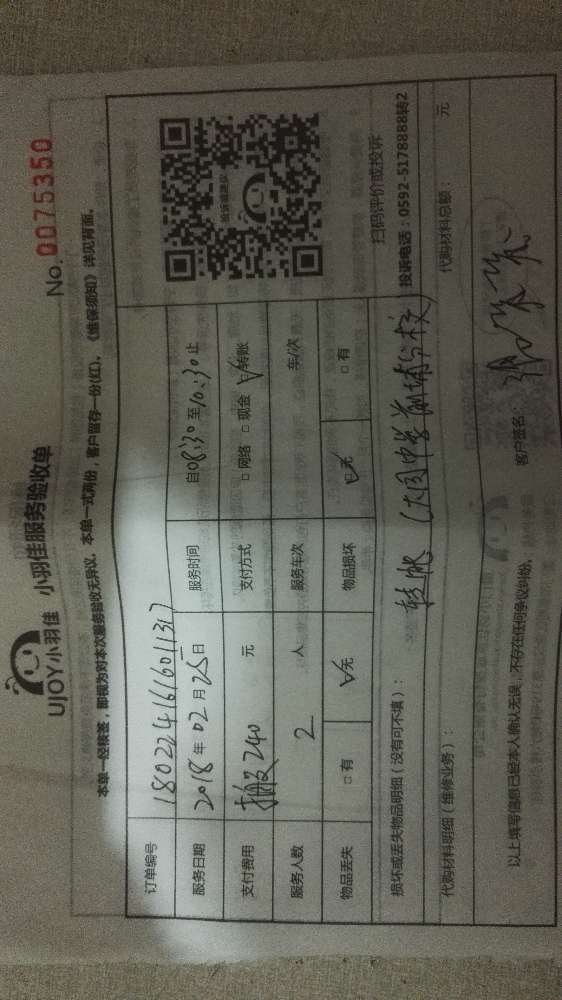 UJOY小羽佳 小羽佳服务验收单
No. 0075350
本单一经核签，即视为对本次服务验收无异议。本单一式两份，客户留存一份(红)。《维保须知》详见背面。
订单编号 180224161601131
服务日期 2018年02月25日 服务时间 自08:30至10:30止
支付费用 搬及240 元 支付方式 □网络 □现金 √转账
服务人数 2 人 服务车次 车/次
物品丢失 □有 √无 物品损坏 √无 □有
投诉或建议
扫码评价或投诉
投诉电话：0592-5178888转2
损坏或丢失物品明细（没有可不填）：
转帐（大同中学前埔分校）
代购材料明细（维修业务）： 代购材料总额： 元
以上填写信息已经本人确认无误，不存在任何争议纠纷。 客户签名：